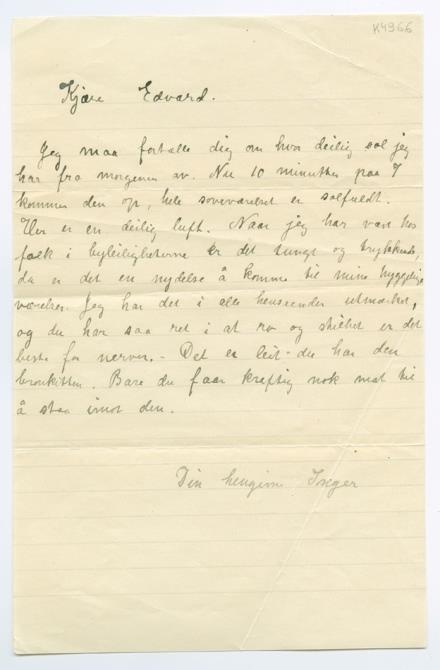 K4966
Kjære Edvard.
Jeg maa fortælle dig om hvor deilig sol jeg
har fra morgenen av. Nu 10 minutter paa 7
kommer den op, hele soveværelset er solfuldt.
Her er en deilig luft. Naar jeg har vært hos
folk i byleilighterne er det tungt og trykkende,
da er det en nydelse å komme til mine hyggelige
værelser. Jeg har det i alle henseender utmerket,
og du har saa ret i at ro og stilhet er det
beste for nerver. - Det er leit du har den
bronkitten. Bare du faar kraftig nok mat til
å staa imot den.
Din hengivne Inger